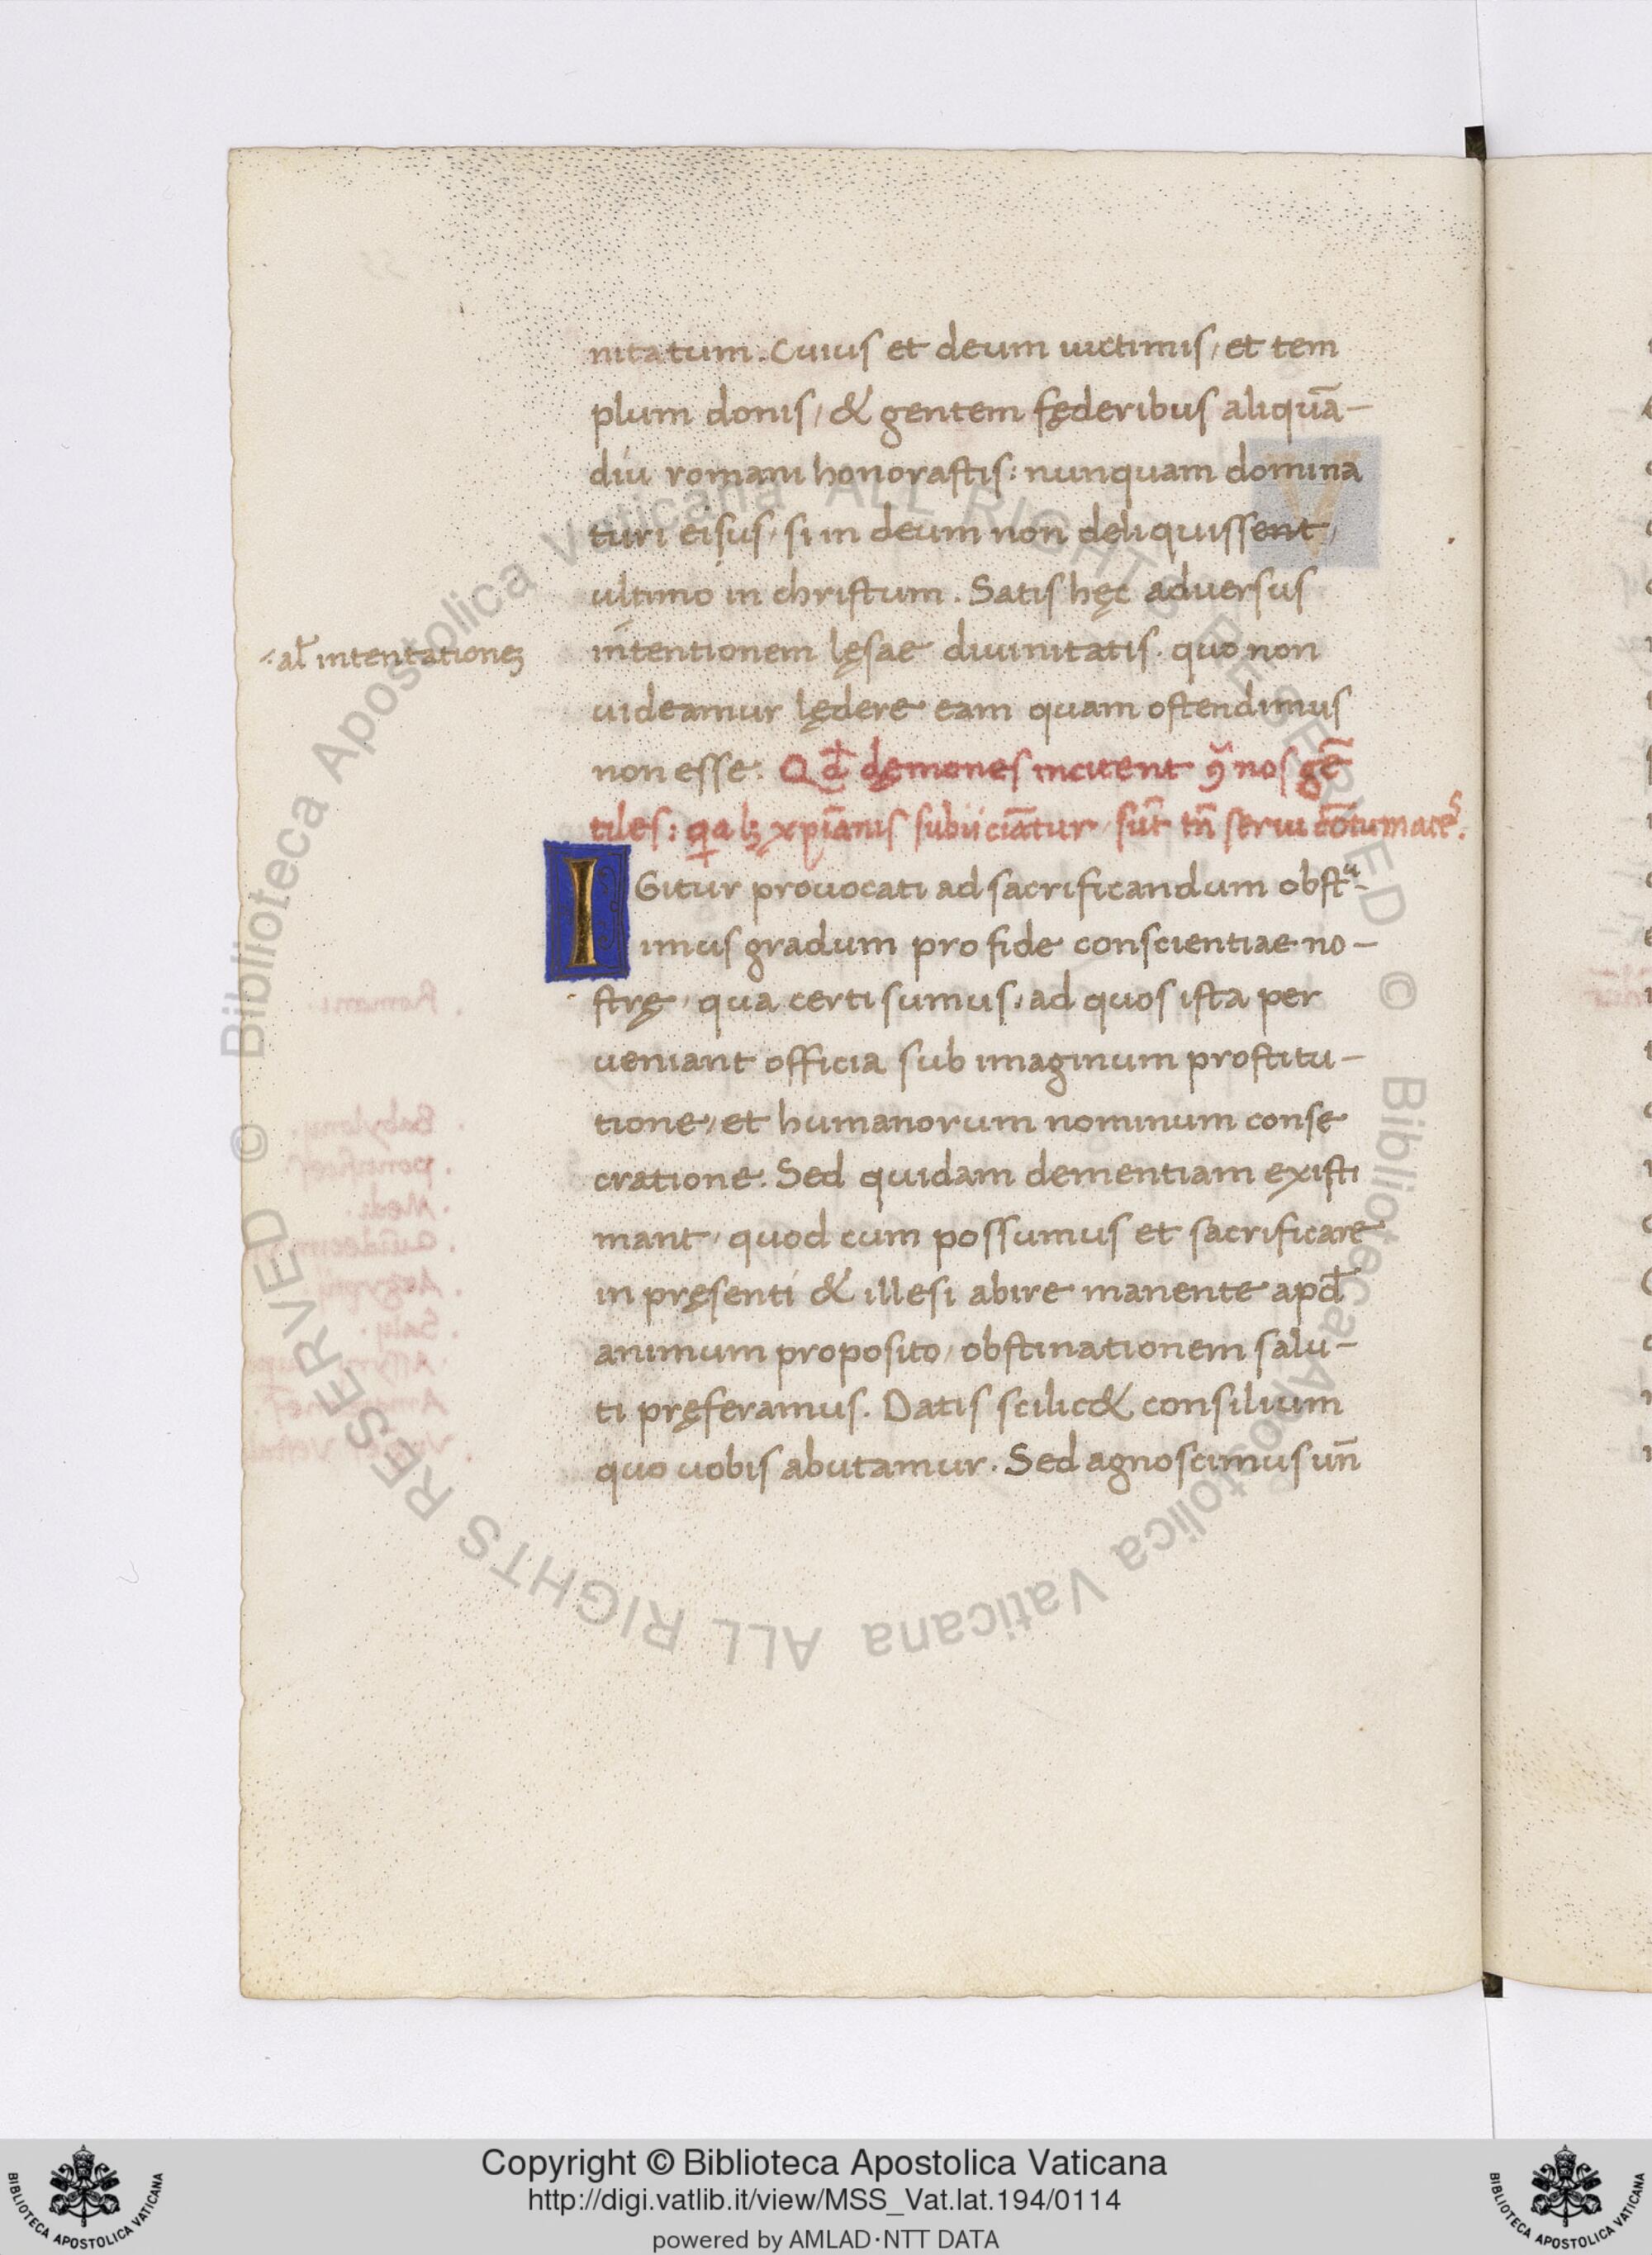 nitatum. Cuius et deum uictimis, et tem
plum donis, & gentem fęderibus aliquā-
diu romani honorastis: nunquam domina
turi eisus, si in deum non deliquissent,
ultimo in christum. Satis hęc adversus
·al̄ intentationeʒ
intentionem lęsae diuinitatis. quo non
uideamur lędere eam quam ostendimus
non esse. Qd̄ dęmones incitent ꝯ nos gē
tiles: xp̄ianis subiiciātur sūt tn̄ serui cōtumaces.
IGitur provocati ad sacrificandum obstᵃ-
imus gradum pro fide conscientiae no-
strę, qua certi sumus, ad quos ista per
ueniant officia sub imaginum prostitu-
tione, et humanorum nominum conse
cratione. Sed quidam dementiam existi
mant, quod cum possumus et sacrificare
in pręsenti & illesi abire manente apd̄
animum proposito, obstinationem salu-
ti pręferamus. Datis scilic& consilium
quo uobis abutamur. Sed agnoscimus un̄
© Biblioteca Apostolica Vaticana ALL RIGHTS RESERVED
© Biblioteca Apostolica Vaticana ALL RIGHTS RESERVED
Copyright © Biblioteca Apostolica Vaticana
http://digi.vatlib.it/view/MSS_Vat.lat.194/0114
powered by AMLAD·NTT DATA
BIBLIOTECA APOSTOLICA VATICANA
BIBLIOTECA APOSTOLICA VATICANA